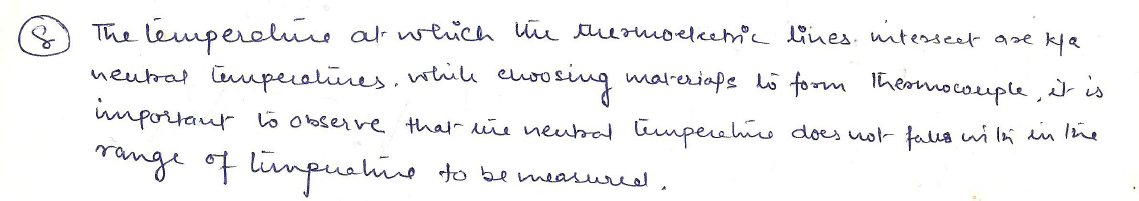 8 The temperature at which the thermoelectric lines intersect are k/a
neutral temperatures. while choosing materials to form thermocouple, it is
important to observe that the neutral temperature does not falls with in the
range of temperature to be measured.